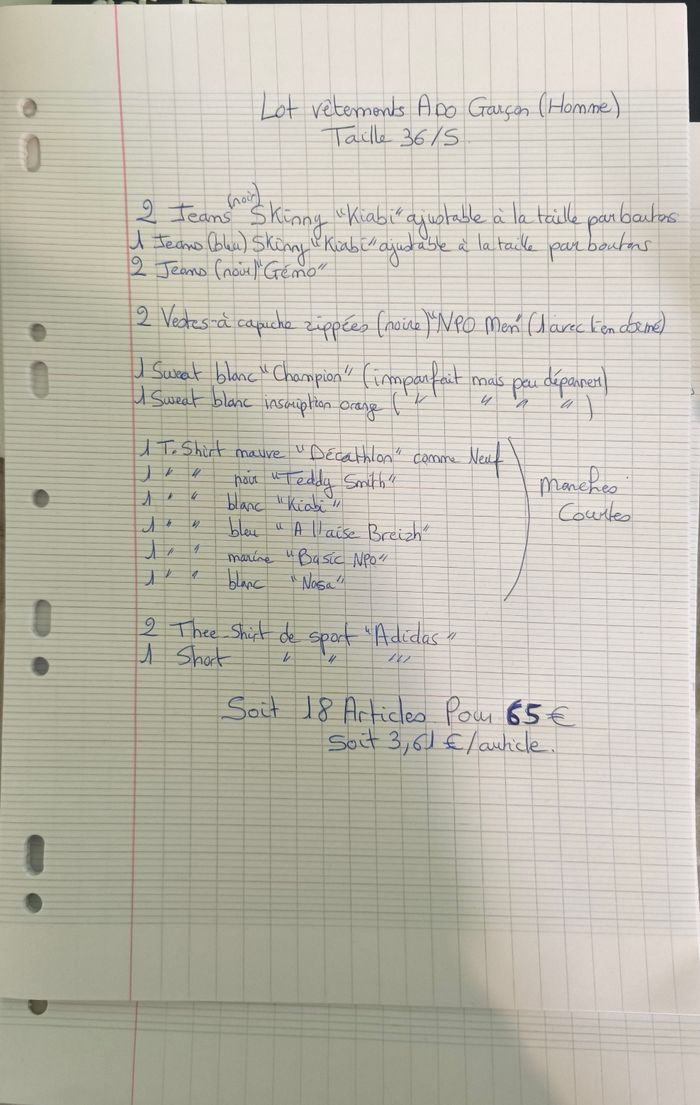 Lot vêtements Ado Garçon (Homme)
Taille 36/S
2 Jeans (noir) Skinny "Kiabi" ajustable à la taille par boutons
1 Jeans (bleu) Skinny "Kiabi" ajustable à la taille par boutons
2 Jeans (noir) "Gémo"
2 Vestes à capuche zippées (noire) "NPO Men" (1 avec lien abimé)
1 Sweat blanc "Champion" (imparfait mais peu dépanner)
1 Sweat blanc inscription orange ( " " " " )
1 T.Shirt mauve "Décathlon" comme Neuf
1 " " noir "Teddy Smith"
1 " " blanc "Kiabi"
1 " " bleu "A l'aise Breizh"
1 " " marine "Basic NPO"
1 " " blanc "Nasa"
Manches
Courtes
2 Thee-Shirt de sport "Adidas"
1 Short " " " "
Soit 18 Articles Pour 65 €
Soit 3,61 €/article.